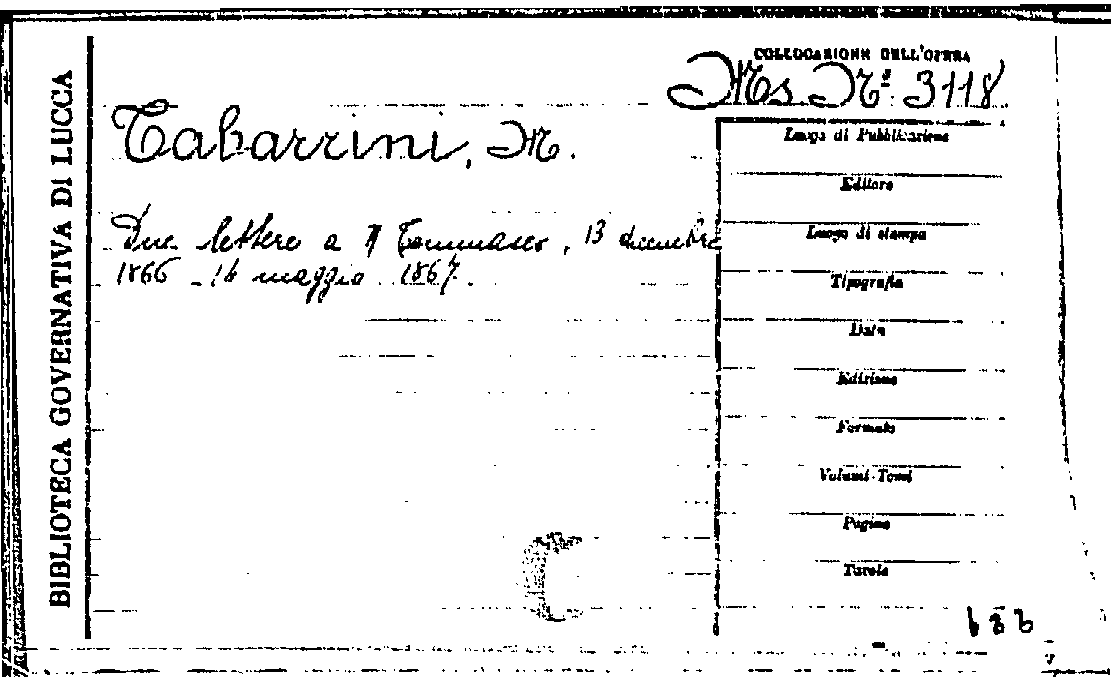 BIBLIOTECA GOVERNATIVA DI LUCCA
COLLOCAZIONE DELL'OPERA
Ms. Nº. 3118
Tabarrini, M.
Due lettere a N Tommaseo, 13 dicembre
1866 - 16 maggio 1867.
Luogo di Pubblicazione
Editore
Luogo di stampa
Tipografia
Data
Edizione
Formato
Volumi-Tomi
Pagine
Tavole